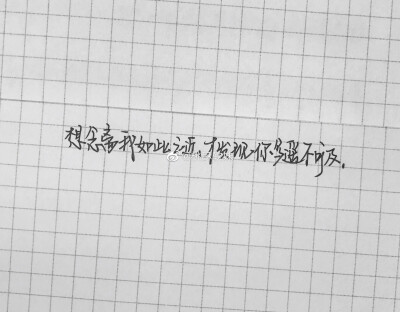 想念离我如此之近，才发现你是遥不可及。